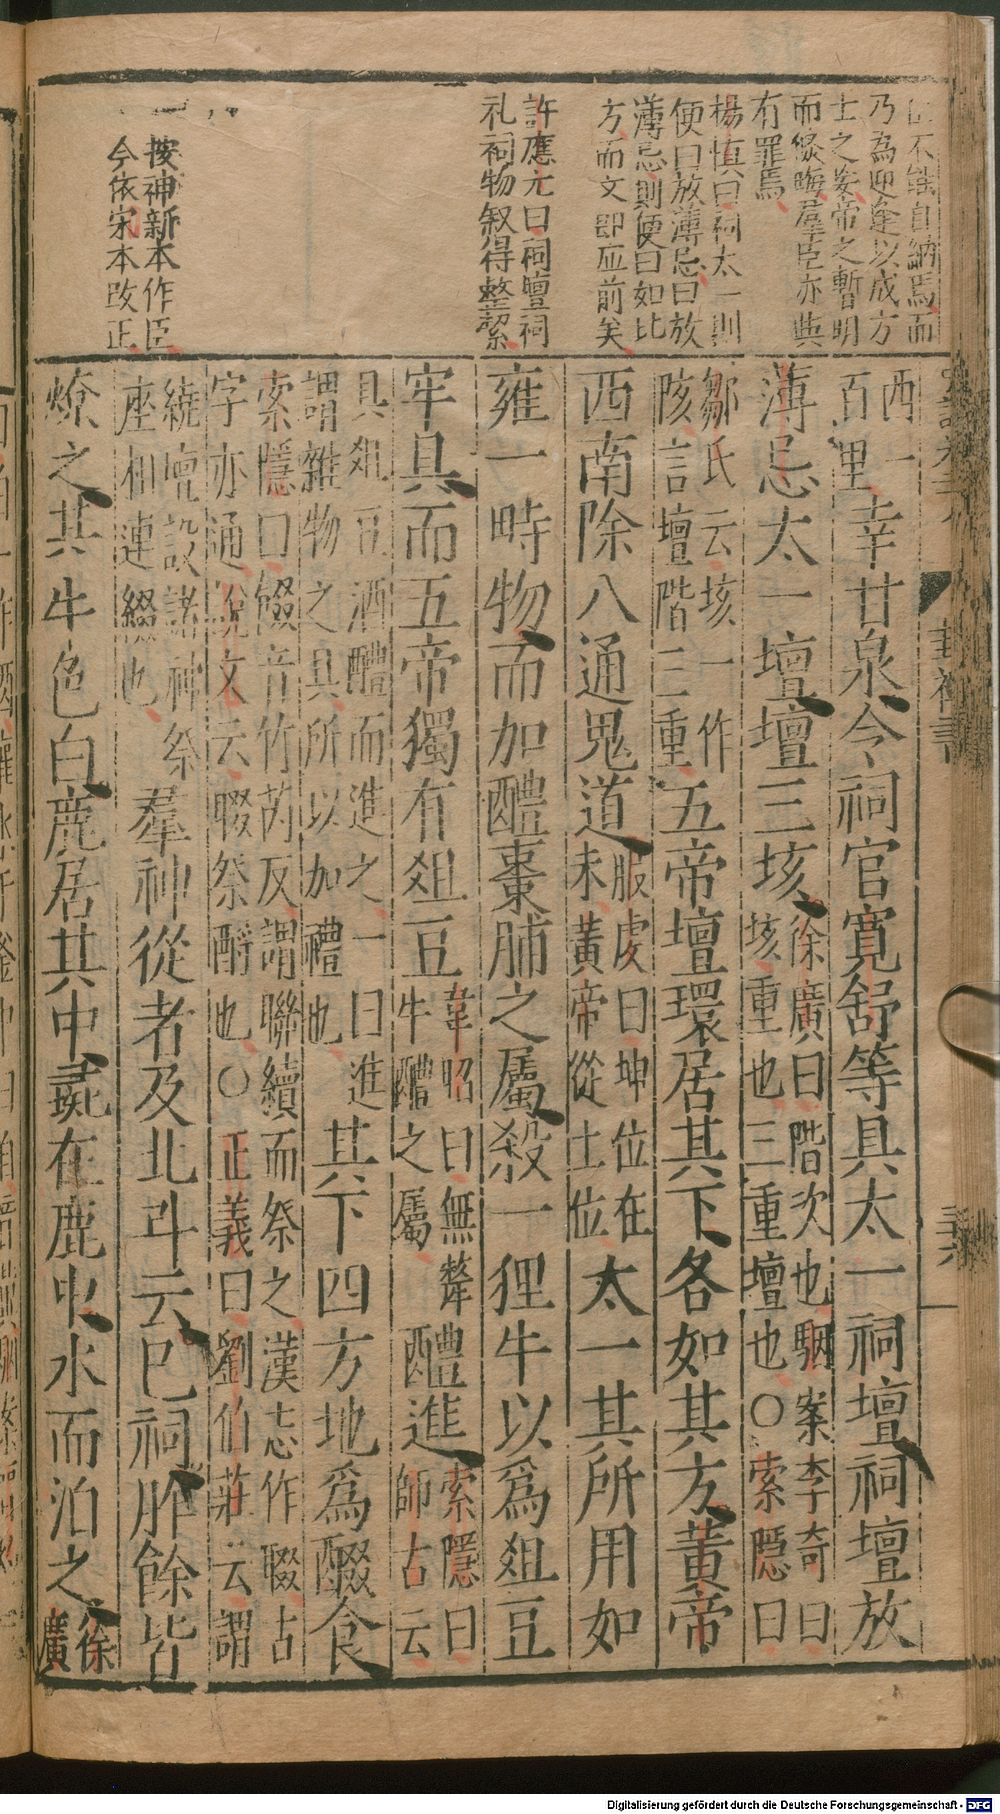 以不能自納焉而
乃為迎逢以成方
士之妄帝之暫明
而終晦羣臣亦與
有罪焉
楊慎曰祠太一則
便曰放薄忌曰放
薄忌則便曰如比
方而文即應前矣
許應元曰祠壇祠
礼祠物叙得整潔
按神新本作臣
今依宋本改正
酉一
百里幸甘泉今祠官寬舒等具太一祠壇祠壇放
薄忌太一壇壇三垓徐廣曰階次也駰案李奇曰
垓重也三重壇也○索隱曰
鄒氏云垓一作
陔言壇階三重五帝壇環居其下各如其方黃帝
西南除八通鬼道服虔曰坤位在
未黃帝從土位太一其所用如
雍一畤物而加醴棗脯之屬殺一狸牛以爲俎豆
牢具而五帝獨有俎豆韋昭曰無犛醴進索隱曰
牛醴之屬師古云
具俎豆酒醴而進之一曰進
謂雜物之具所以加禮也其下四方地爲醊食
索隱曰餟音竹芮反謂聯續而祭之漢志作腏古
字亦通說文云腏祭酹也○正義曰劉伯莊云謂
繞壇設諸神祭
座相連綴也羣神從者及北斗云已祠胙餘皆
燎之其牛色白鹿居其中彘在鹿中水而洎之徐
廣
封禪書
Digitalisierung gefördert durch die Deutsche Forschungsgemeinschaft - DFG